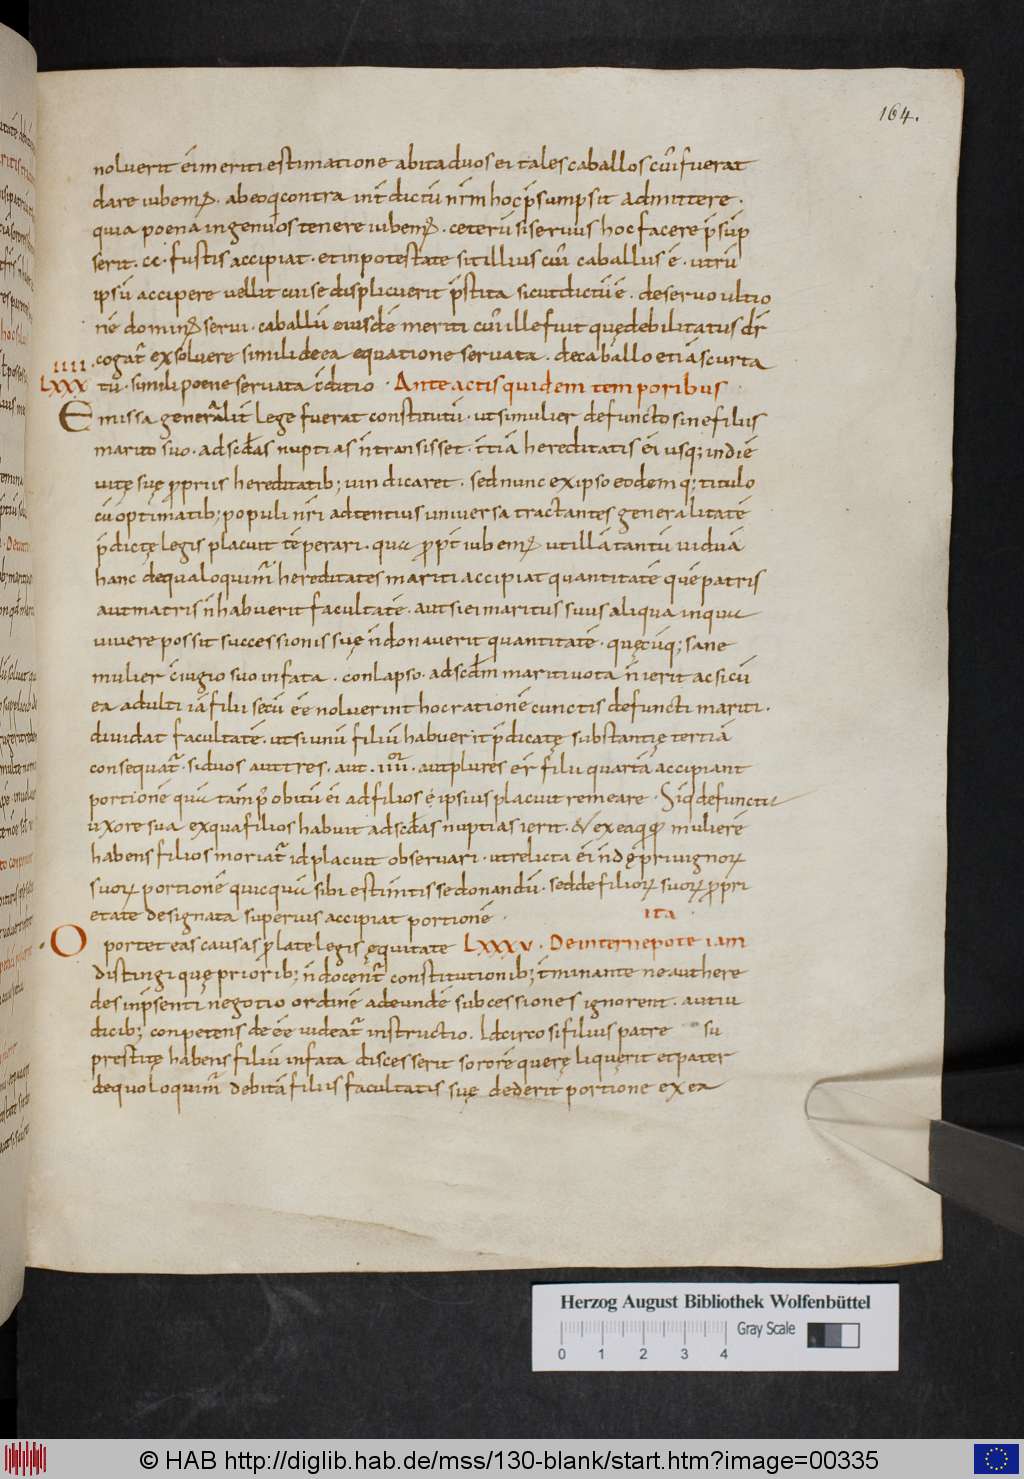 164.
noluerit ei meriti estimatione abita duos ei tales caballos cuī fuerat
dare iubem̄. ab eo qͥ contra int̄dictū nr̄m hoc p̄sumpsit admittere.
quia poena ingenuos tenere iubem̄. ceterū si seruus hoc facere p̄sūp
serit. cc. fustis accipiat. et in potestate sit illius cuī caballus ē. utrū
ipsū accipere uellit cui se displicuerit p̄stita sicut dictū ē. de seruo ultio
nē domin̄ serui. caballū eiusdē meriti cuī ille fuit quę debilitatus dr̄
cogat̄ exsoluere simili de ea equatione seruata. de caballo etiā scurta
IIII.
LXXX tū. simili poene seruata c̄ditio. Ante actis quidem temporibus
Emissa generalit̄ lege fuerat constitutū. ut si mulier defuncto sine filiis
marito suo. ad scd̄as nuptias n̄ transisset. t̄tiā hereditatis ei usq; in diē
uitę suę p̄priis hereditatib; uindicaret. sed nunc ex ipso eodemq; titulo
cū optimatib; populi nr̄i adtentius uniuersa tractantes generalitatē
p̄dictę legis placuit tēperari. qua p̄pt̄ iubem̄ ut illā tantū uiduā
hanc de qua loquim̄ hereditates mariti accipiat quantitatē quē patris
aut matris n̄ habuerit facultatē. aut si ei maritus suus aliqua in qua
uiuere possit successionis suę n̄ donauerit quantitatē. quęcūq; sane
mulier c̄iugio suo infata. conlapso. ad scd̄m mariti uota n̄ ierit ac si cū
ea adulti iā filii secū ēē noluerint hoc rationē cunctis defuncti mariti.
diuidat facultatē. ut si unū filiū habuerit p̄dicatę substantię tertiā
consequat̄. si duos aut tres. aut. IIIIor. aut plures er̄ filii quartā accipiant
portionē quā tam p̄ obitū ei ad filios ęipsius placuit remeare. Siq̄ defuncta
uxore sua ex qua filios habuit ad scd̄as nuptias ierit. & ex ea qq̄ mulierē
habens filios moriat̄ id placuit obseruari. ut relicta ei n̄ dę priuignoꝝ
suoꝝ portionē quicquā sibi estim̄tis se donandū. sed de filioꝝ suoꝝ p̄pri
etate designata superius accipiat portionē.
ita.
Oportet eas causas p̄late legis ęquitate LXXXV. De internepote iam
distingi quę priorib; n̄ docent̄ constitutionib; t̄minante ne aut here
des inp̄senti negotio ordinē adeundē subcessiones ignorent. aut iu
dicib; conpetens de ēē uideat̄ instructio. Idcirco si filius patre su
prestitę habens filiū infata discesserit sororē querę liquerit et pater
de quo loquim̄ debitā filius facultatis suę dederit portione ex ea
Herzog August Bibliothek Wolfenbüttel
Gray Scale
0 1 2 3 4
© HAB http://diglib.hab.de/mss/130-blank/start.htm?image=00335